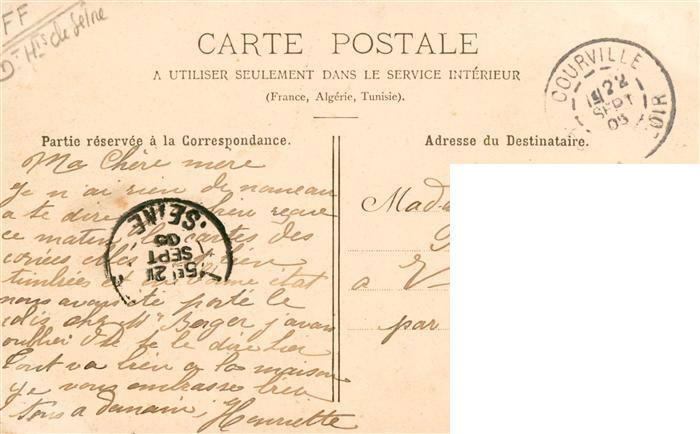 FF
Hts de Seine
CARTE POSTALE
A UTILISER SEULEMENT DANS LE SERVICE INTÉRIEUR
(France, Algérie, Tunisie).
COURVILLE
22
SEPT
05
OIR
Partie réservée à la Correspondance.
Adresse du Destinataire.
Ma Chère mere
je n ai rien de nouveau
a te dire bien reçue
ce matin le cartes des
bien
timbrées et de bonne état
nous avons été porté le
colis chez Mr Berger j'avais
oublier de te le dire hier
Tout va bien a la maison
je vous embrasse bien
Tous a demain, Henriette
SEINE
5E 21
SEPT
05
Mad
a V
par